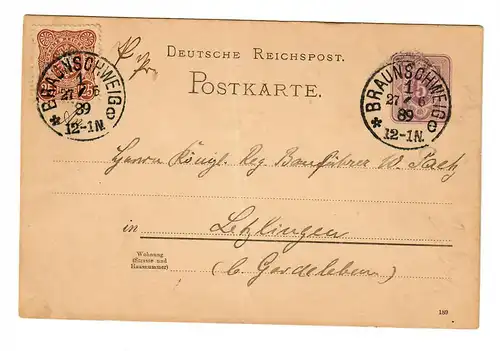 DEUTSCHE REICHSPOST.
POSTKARTE.
BRAUNSCHWEIG
1
27 6
89
12-1N.
BRAUNSCHWEIG
1
27 6
89
12-1N.
5
Herrn Königl. Reg Bauführer W. Paetz
in Letzlingen
Wohnung
(Strasse und
Hausnummer)
(b. Gardeleben)
189